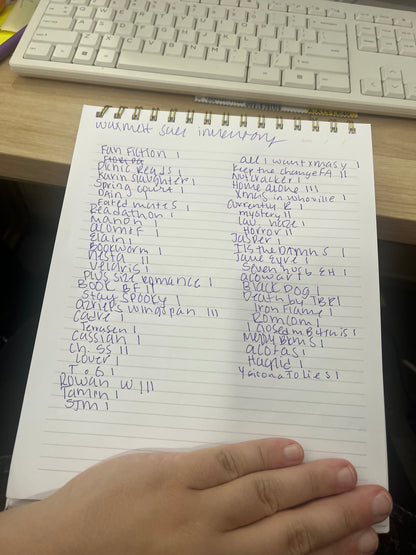 waxmelt sale inventory
Fan Fiction I
Picnic Reads I
Karin Slaughter I
Spring Court I
Dain I
Fated mates I
Readathon I
Manon I
acomaf I
Elain I
Bookworm I
Nesta II
Velaris I
Plus size romance I
BOOK BF II
Stay Spooky I
azriels wingspan III
Cadre I
Jensen I
Cassian I
Ch. 55 II
Lover I
T.O.G I
Rowan W III
Tamlin I
SJM I
all i want xmas y I
keep the change FA II
nutcracker I
Home alone III
Xmas in whoville
Currently R I
mystery II
lav haze I
Horror II
Jasper I
I is the DAMNS I
Jane Eyre I
Seven nofb EH I
acowar I
Black Dog I
Death by TBR I
Iron Flame I
Romcom I
I nosed m B4 this I
Merry Bkms I
acotas I
Hagrid I